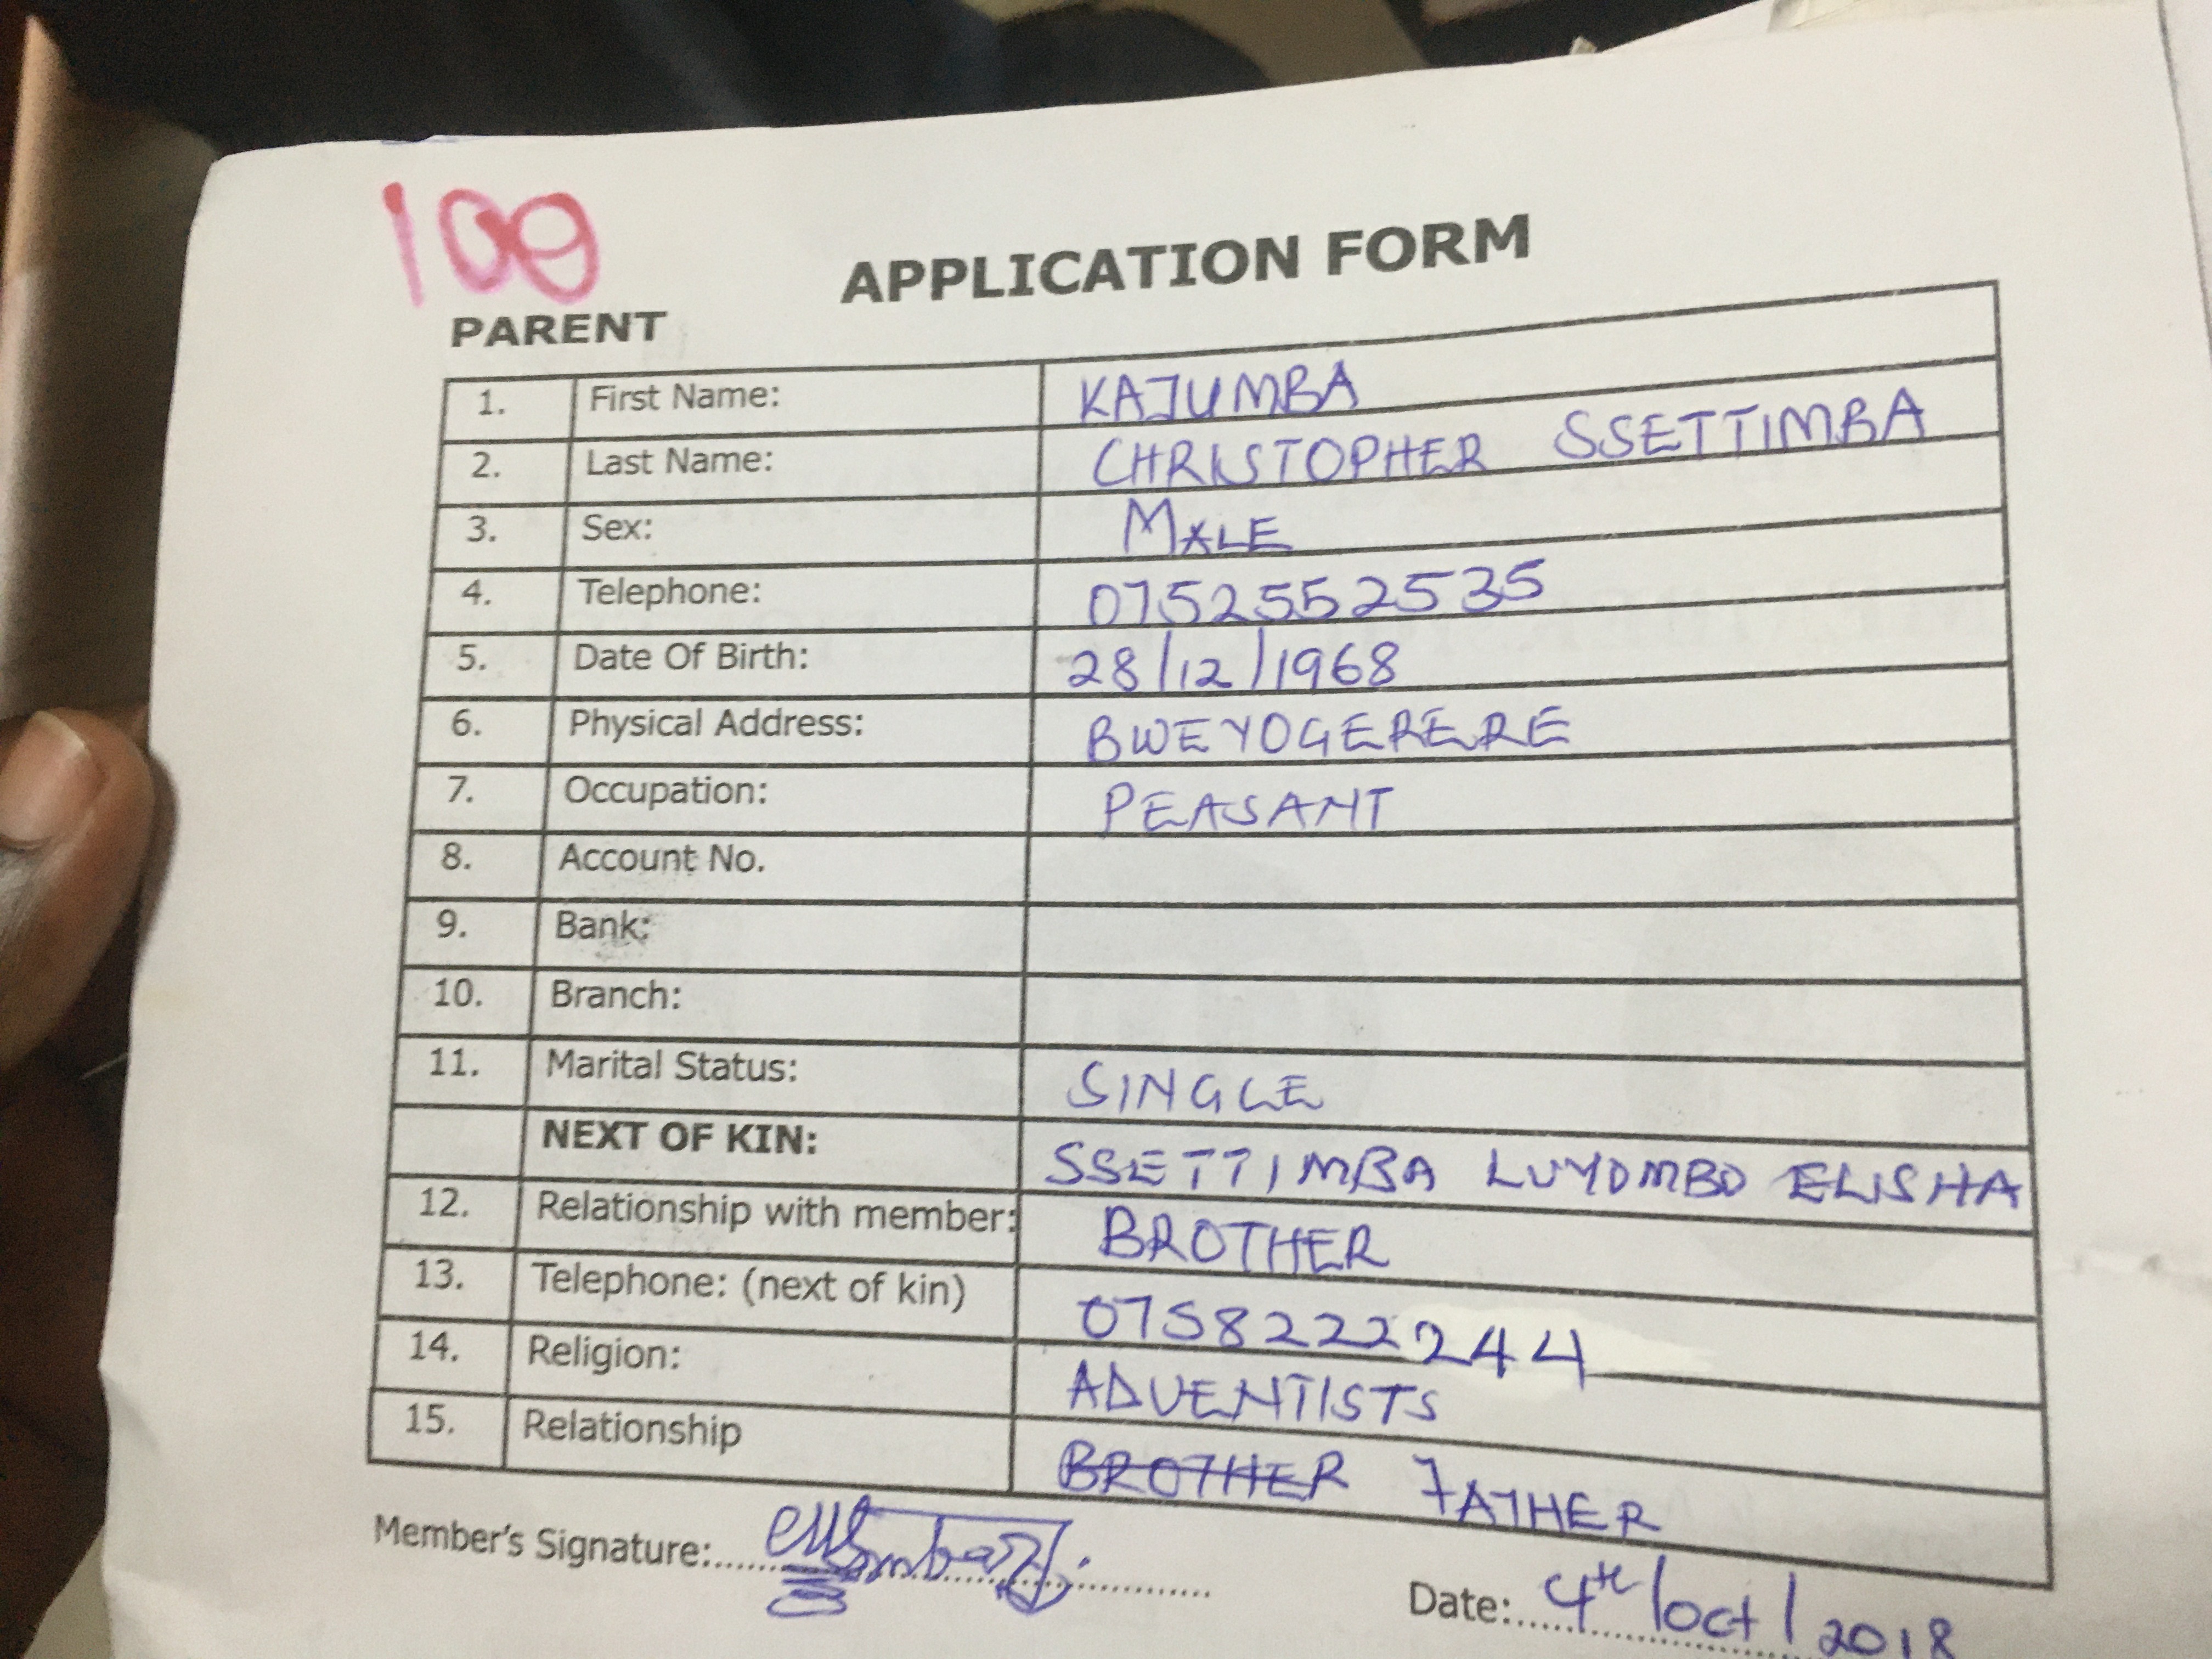 108
APPLICATION FORM
PARENT
1. First Name: KAJUMBA
2. Last Name: CHRISTOPHER SSETTIMBA
3. Sex: MALE
4. Telephone: 0752552535
5. Date Of Birth: 28/12/1968
6. Physical Address: BWEYOGERERE
7. Occupation: PEASANT
8. Account No.
9. Bank:
10. Branch:
11. Marital Status: SINGLE
NEXT OF KIN: SSETTIMBA LUYOMBO ELISHA
12. Relationship with member: BROTHER
13. Telephone: (next of kin) 0758222244
14. Religion: ADVENTISTS
15. Relationship BROTHER FATHER
Member's Signature:
Date: 4th/oct/2018